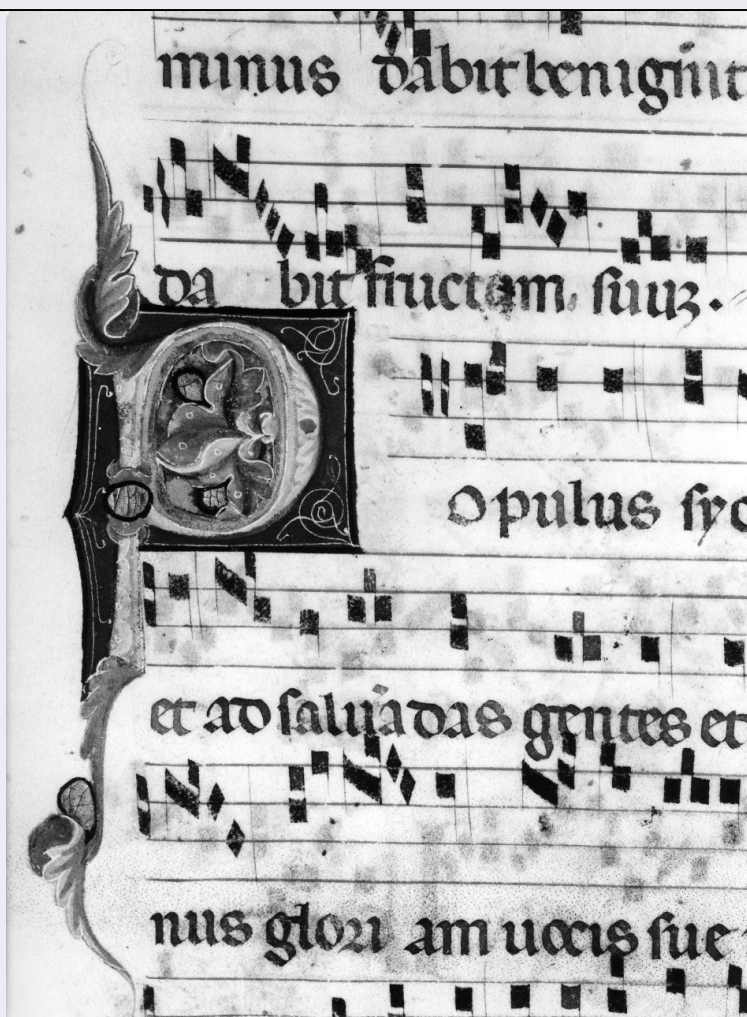 minus dabit benignit
da bit fructum suuz.
Populus syo
et ad saluādas gentes et
nus glori am uocis sue